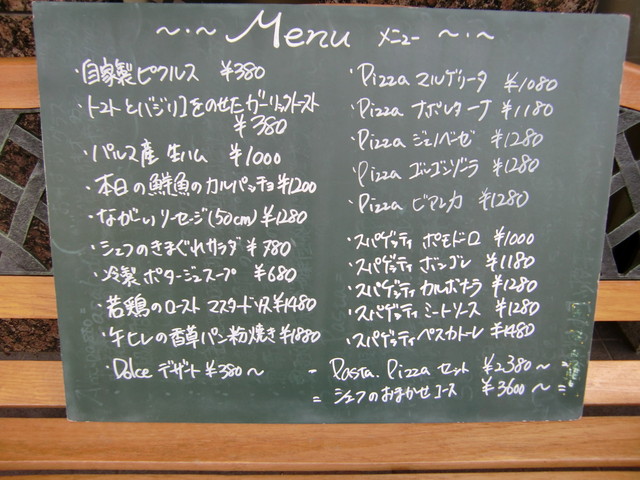 ～・～ Menu メニュー ～・～
・自家製ピクルス ¥380
・トマトとバジリコをのせたガーリックトースト
¥380
・パルマ産 生ハム ¥1000
・本日の鮮魚のカルパッチョ ¥1200
・ながーいソーセージ(50cm) ¥1280
・シェフのきまぐれサラダ ¥780
・冷製ポタージュスープ ¥680
・若鶏のロースト マスタードソース ¥1480
・牛ヒレの香草パン粉焼き ¥1880
・Dolce デザート ¥380～
・Pizza マルゲリータ ¥1080
・Pizza ナポレターナ ¥1180
・Pizza ジェノベーゼ ¥1280
・Pizza ゴルゴンゾーラ ¥1280
・Pizza ビアンカ ¥1280
・スパゲッティ ポモドーロ ¥1000
・スパゲッティ ボンゴレ ¥1180
・スパゲッティ カルボナーラ ¥1280
・スパゲッティ ミートソース ¥1280
・スパゲッティ ペスカトーレ ¥1480
- Pasta. Pizza セット ¥2,380～
= シェフのおまかせコース ¥3600～ =